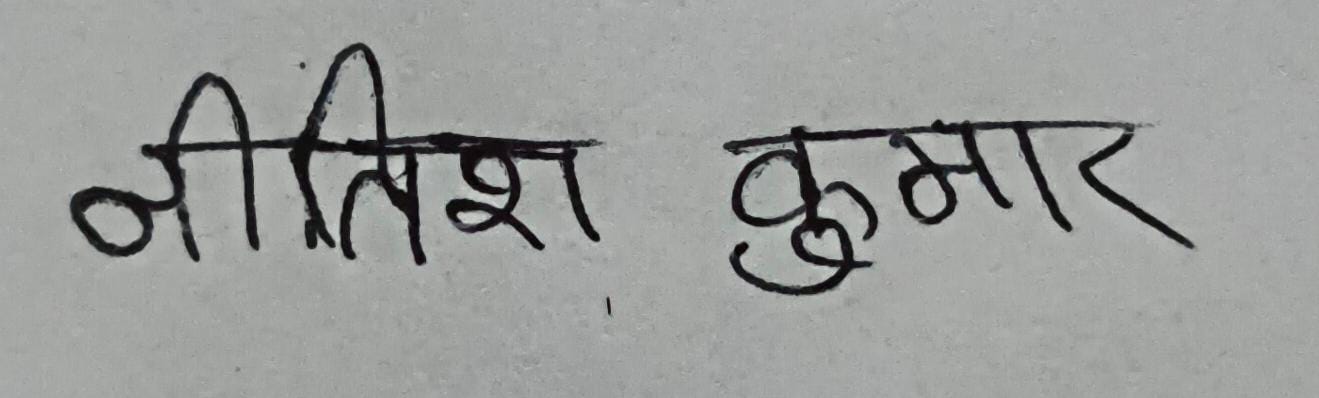 नीतिश कुमार